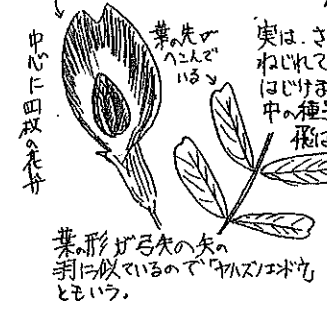 中心に四枚の花弁
葉の先が
へこんで
いる
実は、さ
ねじれて
はじけま
中の種
飛は
葉の形が弓矢の矢の
羽に似ているので「ヤハズノエンドウ」
ともいう。